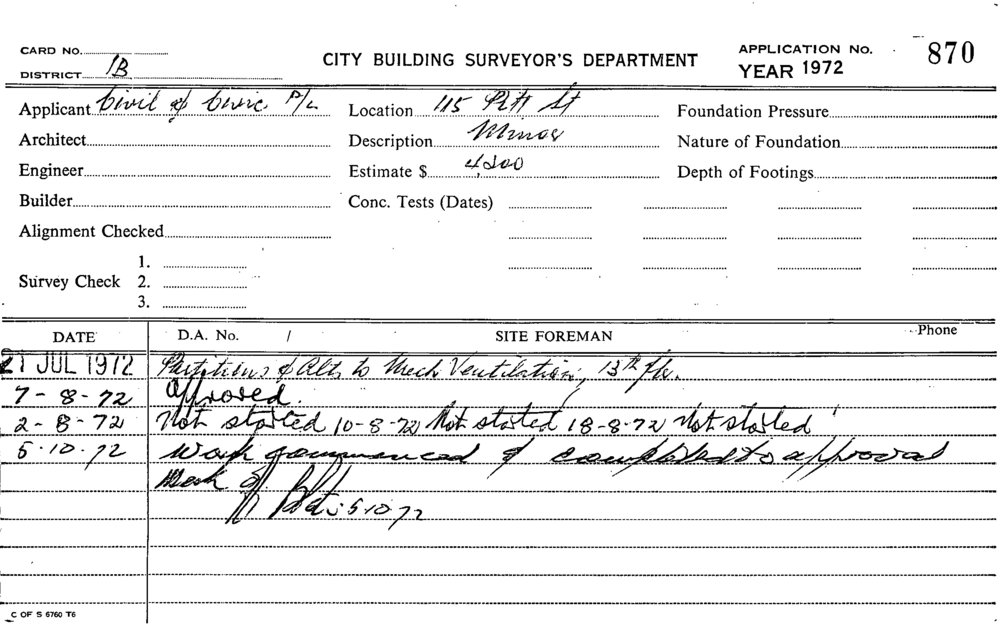 CARD NO.
DISTRICT 1B
CITY BUILDING SURVEYOR'S DEPARTMENT
APPLICATION NO. 870
YEAR 1972
Applicant Civil & Civic P/L Location 115 Pitt St Foundation Pressure
Architect Description Minor Nature of Foundation
Engineer Estimate $ 4,200 Depth of Footings
Builder Conc. Tests (Dates)
Alignment Checked
1.
Survey Check 2.
3.
DATE D.A. No. / SITE FOREMAN Phone
21 JUL 1972 Partitions & Alts to Mech Ventilation, 13th flr.
7-8-72 Approved.
2-8-72 Not started 10-8-72 Not started 18-8-72 Not started
5.10.72 Work commenced & completed to approval
5.10.72
C OF S 6760 T6